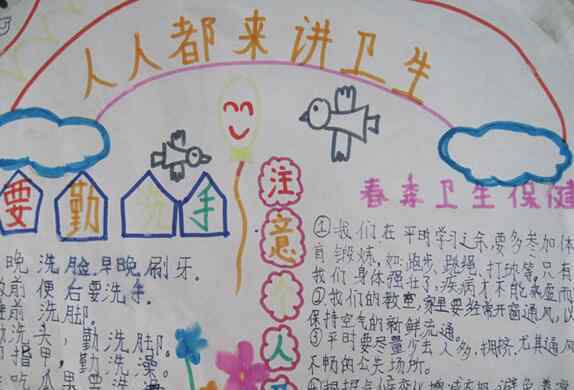 人人都来讲卫生
要勤洗手
晚洗脸,早晚刷牙。
前便后要洗手。
前洗脚。
勤洗头,勤洗脚。
指甲,勤洗澡。
吃
注意个人卫
春季卫生保健
①我们在平时学习之余,要多参加体
育锻炼,如:跑步、跳绳、打球等,只有
我们身体强壮了,疾病才不能乘虚而
②我们的教室,家里要经常开窗通风,以
保持空气的新鲜流通。
③平时要尽量少去人多,拥挤,尤其通风
不畅的公共场所。